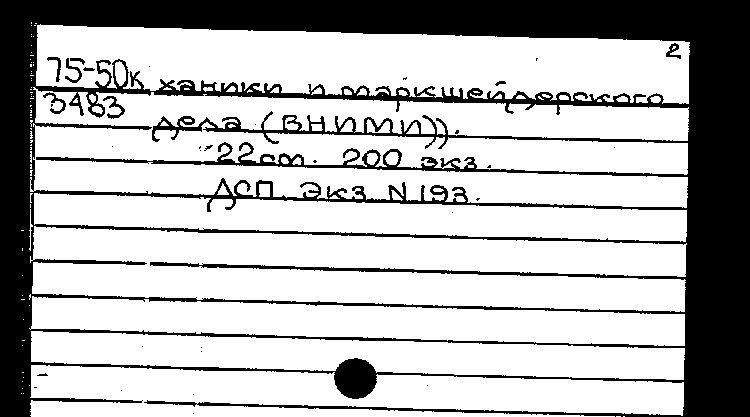 2
75-50к ханики и маркшейдерского
3483 дела (ВНИМИ)).
22см. 200 экз.
ДСП Экз N 193.